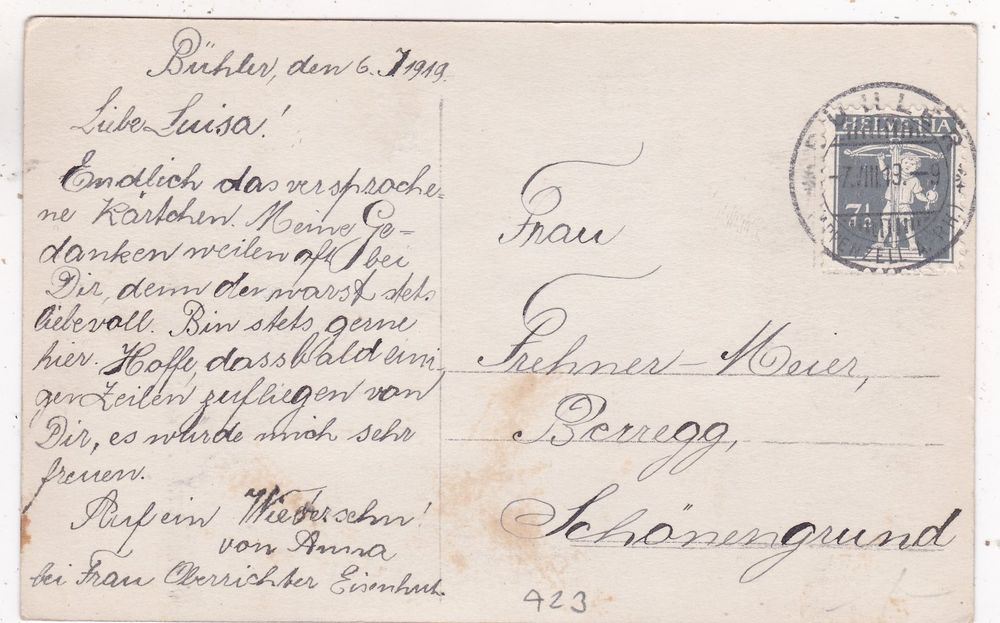 Bühler, den 6. 7. 1919.
Liebe Luisa!
Endlich das versproche-
ne Kärtchen. Meine Ge-
danken weilen oft bei
Dir, denn du warst stets
liebevoll. Bin stets gerne
hier. Hoffe, dass bald eini-
gen Zeilen zufliegen von
Dir, es würde mich sehr
freuen.
Auf ein Wiedersehn!
von Anna
bei Frau Oberrichter Eisenhut.
HELVETIA
7½
BÜHLER
-7.VIII.19.-9
(APPENZELL A.RH.)
Frau
Frehner-Meier,
Berregg,
Schönengrund
423